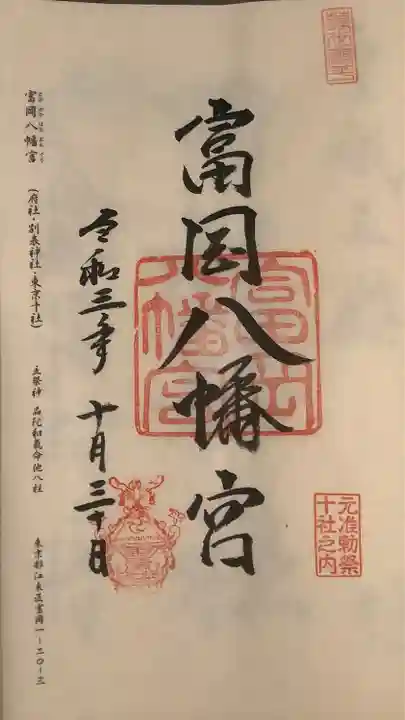 富岡八幡宮
令和三年 十月三十日
元准勅祭
十社之内
富岡八幡宮
とみおかはちまんぐう
富岡八幡宮
(府社・別表神社・東京十社)
主祭神 品陀和氣命他八柱
東京都江東区富岡一ー二〇ー三